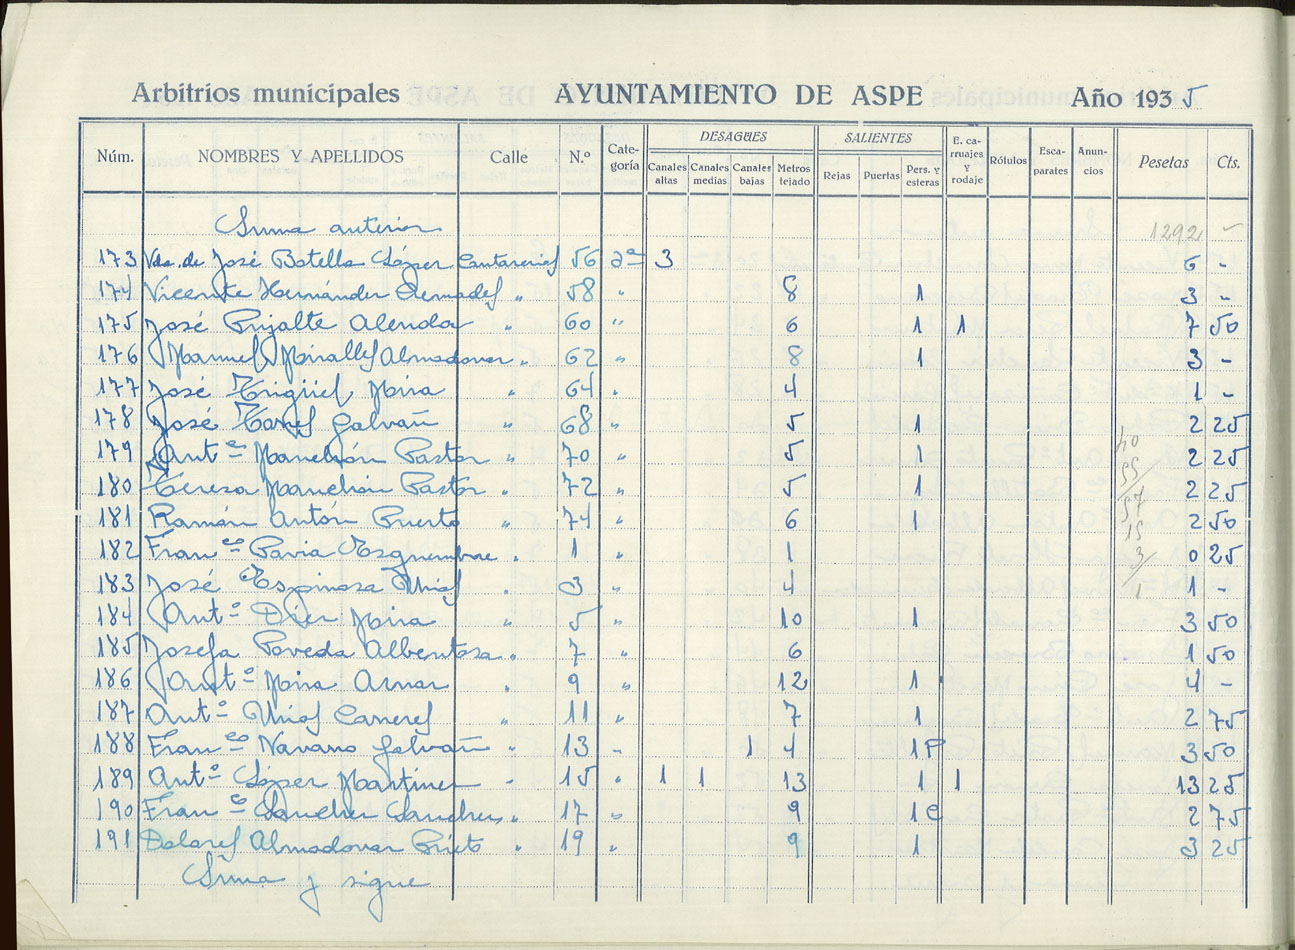 Arbitrios municipales AYUNTAMIENTO DE ASPE Año 1935
Núm. NOMBRES Y APELLIDOS Calle N.º Categoría DESAGÜES Canales altas Canales medias Canales bajas Metros tejado SALIENTES Rejas Puertas Pers. y esteras E. carruajes y rodaje Rótulos Escaparates Anuncios Pesetas Cts.
Suma anterior 1292 -
173 Vda. de José Botella López Cantarerias 56 2ª 3 6 -
174 Vicente Hernández Cremades " 58 " 8 1 3 -
175 José Prijalte Alenda " 60 " 6 1 1 7 50
176 Manuel Miralles Almodovar " 62 " 8 1 3 -
177 José Mira " 64 " 4 1 -
178 José Torres Galvañ " 68 " 5 1 2 25
179 Antº Manchón Pastor " 70 " 5 1 2 25
180 Teresa Manchón Pastor " 72 " 5 1 2 25
181 Ramón Antón Puerto " 74 " 6 1 2 50
182 Franco Pavia " 1 " 1 0 25
183 José Espinosa Urios " 3 " 4 1 -
184 Antº Diez Mira " 5 " 10 1 3 50
185 Josefa Poveda Albentosa " 7 " 6 1 50
186 Antº Mira Aznar " 9 " 12 1 4 -
187 Antº Urios Carreres " 11 " 7 1 2 75
188 Franco Navarro Galvañ " 13 " 1 4 1P 3 50
189 Antº López Martinez " 15 " 1 1 13 1 1 13 25
190 Franco Sanchez Sanchez " 17 " 9 1E 2 75
191 Dolores Almodovar Prieto " 19 " 9 1 3 25
Suma y sigue
40
55
57
15
3
1